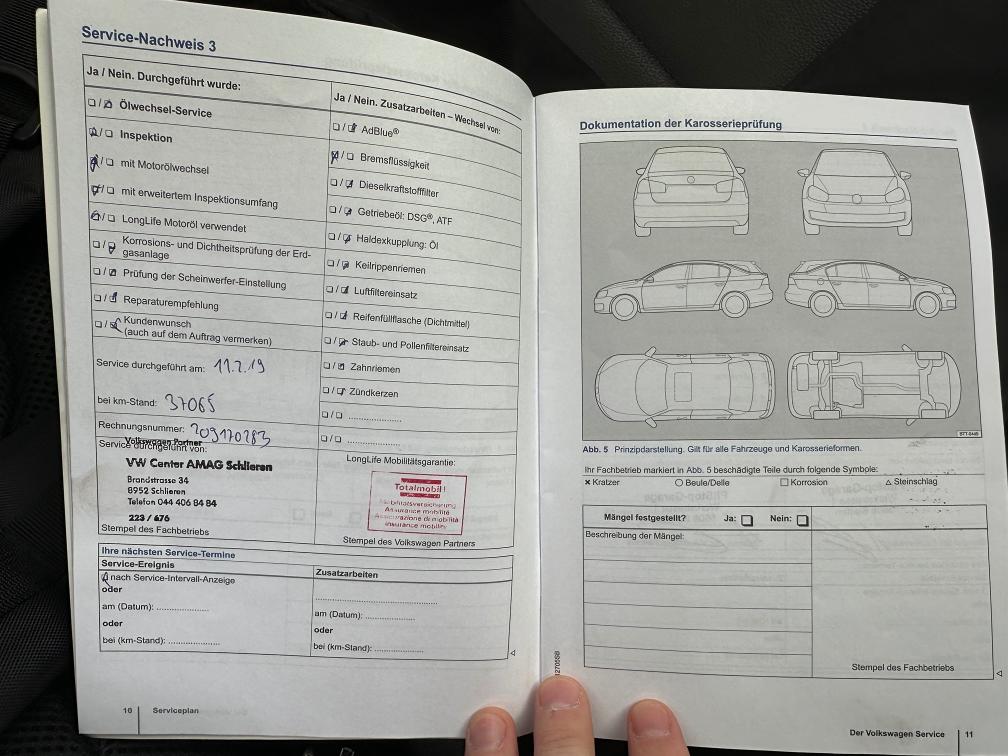 Service-Nachweis 3
Ja / Nein. Durchgeführt wurde:
Ölwechsel-Service
Inspektion
mit Motorölwechsel
mit erweitertem Inspektionsumfang
LongLife Motoröl verwendet
Korrosions- und Dichtheitsprüfung der Erd-
gasanlage
Prüfung der Scheinwerfer-Einstellung
Reparaturempfehlung
Kundenwunsch
(auch auf dem Auftrag vermerken)
Service durchgeführt am: 11.7.19
bei km-Stand: 37065
Rechnungsnummer: 209170283
Volkswagen Partner
Service durchgeführt von:
VW Center AMAG Schlieren
Brandstrasse 34
8952 Schlieren
Telefon 044 406 84 84
223 / 676
Stempel des Fachbetriebs
Ja / Nein. Zusatzarbeiten – Wechsel von:
AdBlue®
Bremsflüssigkeit
Dieselkraftstofffilter
Getriebeöl: DSG®, ATF
Haldexkupplung: Öl
Keilrippenriemen
Luftfiltereinsatz
Reifenfüllflasche (Dichtmittel)
Staub- und Pollenfiltereinsatz
Zahnriemen
Zündkerzen
LongLife Mobilitätsgarantie:
Totalmobil!
Mobilitätsversicherung
Assurance mobilité
Assicurazione di mobilità
Insurance mobility
Stempel des Volkswagen Partners
Ihre nächsten Service-Termine
Service-Ereignis
nach Service-Intervall-Anzeige
oder
am (Datum): ....................
oder
bei (km-Stand): ....................
Zusatzarbeiten
am (Datum): ....................
oder
bei (km-Stand): ....................
10
Serviceplan
Dokumentation der Karosserieprüfung
B7T-0449
Abb. 5 Prinzipdarstellung. Gilt für alle Fahrzeuge und Karosserieformen.
Ihr Fachbetrieb markiert in Abb. 5 beschädigte Teile durch folgende Symbole:
× Kratzer ○ Beule/Delle □ Korrosion △ Steinschlag
Mängel festgestellt? Ja: □ Nein: □
Beschreibung der Mängel:
Stempel des Fachbetriebs
Der Volkswagen Service
11